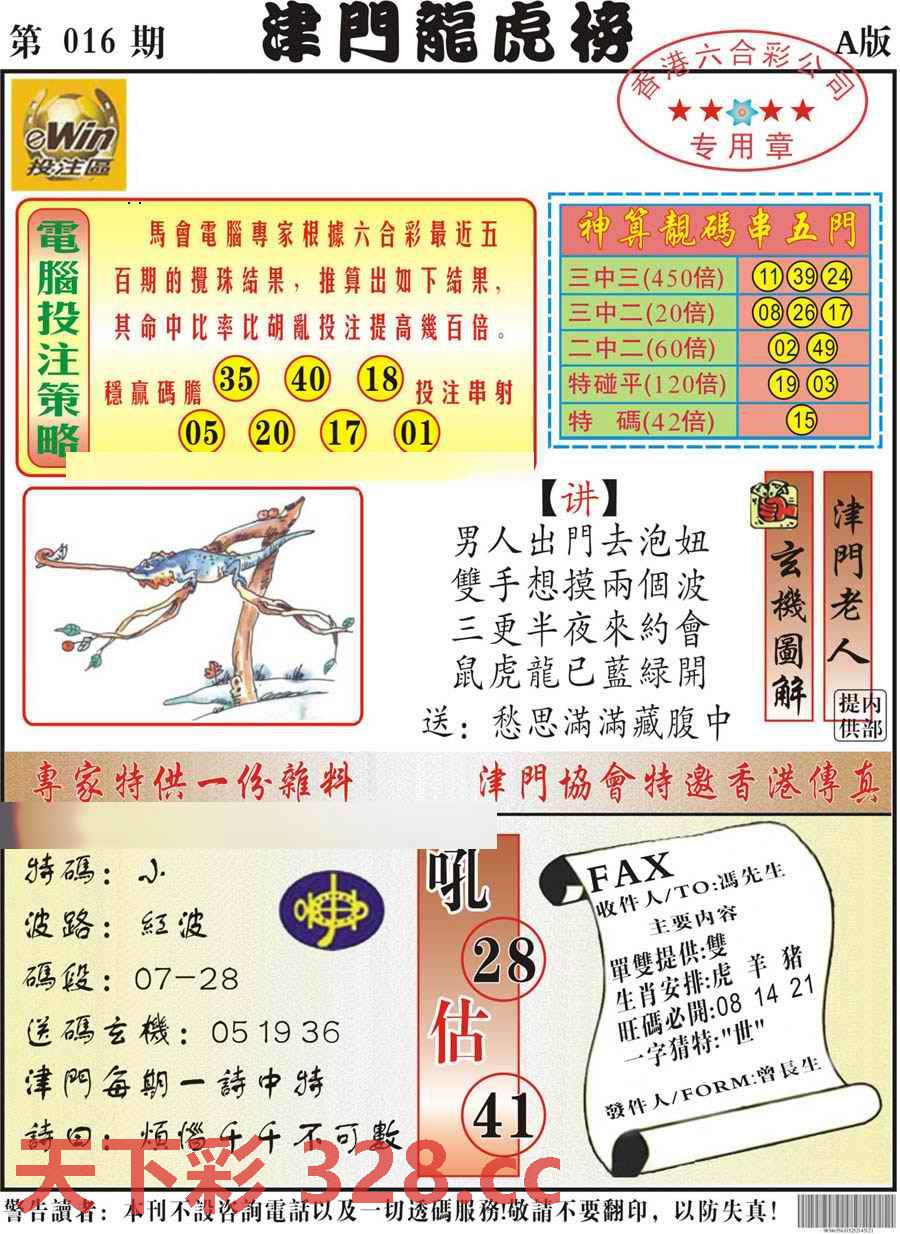 第 016 期
津門龍虎榜
A版
香港六合彩公司
专用章
eWin
投注區
電腦投注策略
馬會電腦專家根據六合彩最近五
百期的攪珠結果，推算出如下結果，
其命中比率比胡亂投注提高幾百倍。
穩贏碼膽 35 40 18 投注串射
05 20 17 01
神算靚碼串五門
三中三(450倍) 11 39 24
三中二(20倍) 08 26 17
二中二(60倍) 02 49
特碰平(120倍) 19 03
特 碼(42倍) 15
【讲】
男人出門去泡妞
雙手想摸兩個波
三更半夜來約會
鼠虎龍已藍緑開
送：愁思滿滿藏腹中
玄機圖解
津門老人
内部
提供
專家特供一份雜料
津門協會特邀香港傳真
特碼：小
波路：紅波
碼段：07-28
送碼玄機：05 19 36
津門每期一詩中特
詩曰：煩惱千千不可數
吼
28
估
41
FAX
收件人/TO:馮先生
主要内容
單雙提供:雙
生肖安排:虎 羊 豬
旺碼必開:08 14 21
一字猜特:"世"
發件人/FORM:曾長生
天下彩 328.cc
警告讀者：本刊不設咨詢電話以及一切透碼服務!敬請不要翻印，以防失真！